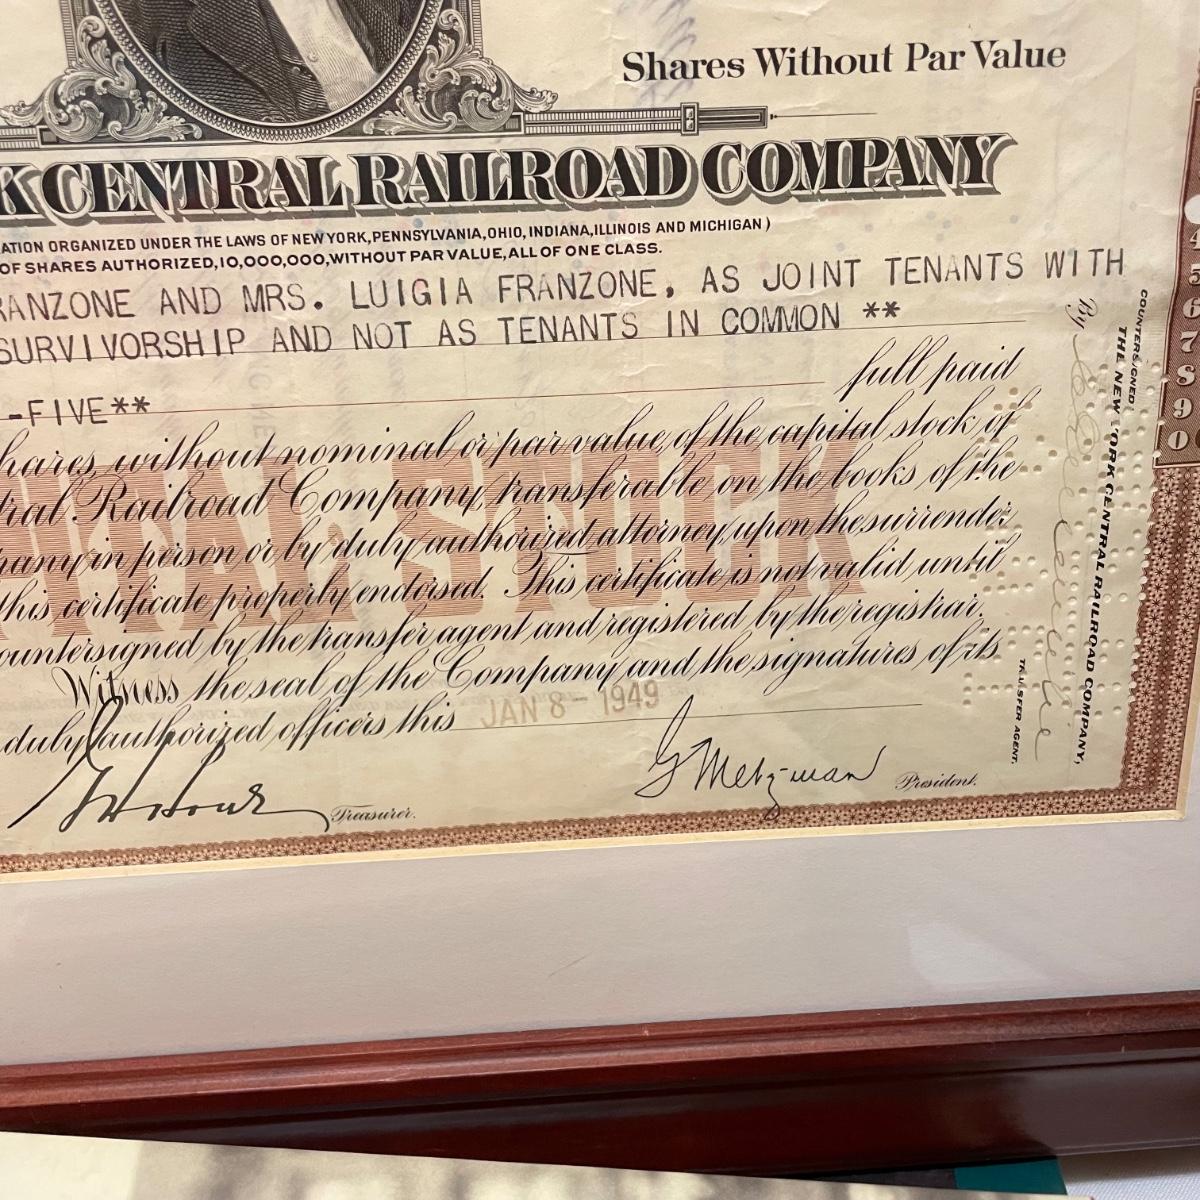 Shares Without Par Value
K CENTRAL RAILROAD COMPANY
ATION ORGANIZED UNDER THE LAWS OF NEW YORK, PENNSYLVANIA, OHIO, INDIANA, ILLINOIS AND MICHIGAN)
OF SHARES AUTHORIZED, 10,000,000, WITHOUT PAR VALUE, ALL OF ONE CLASS.
RANZONE AND MRS. LUIGIA FRANZONE, AS JOINT TENANTS WITH
SURVIVORSHIP AND NOT AS TENANTS IN COMMON **
-FIVE**
full paid
hares without nominal or par value of the capital stock of
tral Railroad Company, transferable on the books of the
pany in person or by duly authorized attorney upon the surrender
this certificate properly endorsed. This certificate is not valid until
ountersigned by the transfer agent and registered by the registrar.
Witness the seal of the Company and the signatures of its
duly authorized officers this JAN 8 - 1949
Treasurer.
G Metzman President.
CAPITAL STOCK
COUNTERSIGNED
THE NEW YORK CENTRAL RAILROAD COMPANY,
By
TRANSFER AGENT.
4
5
6
7
8
9
0